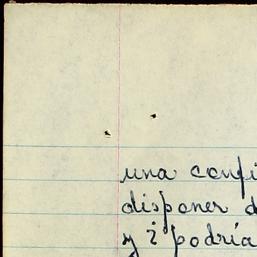 una confi
disponer d
y i podría